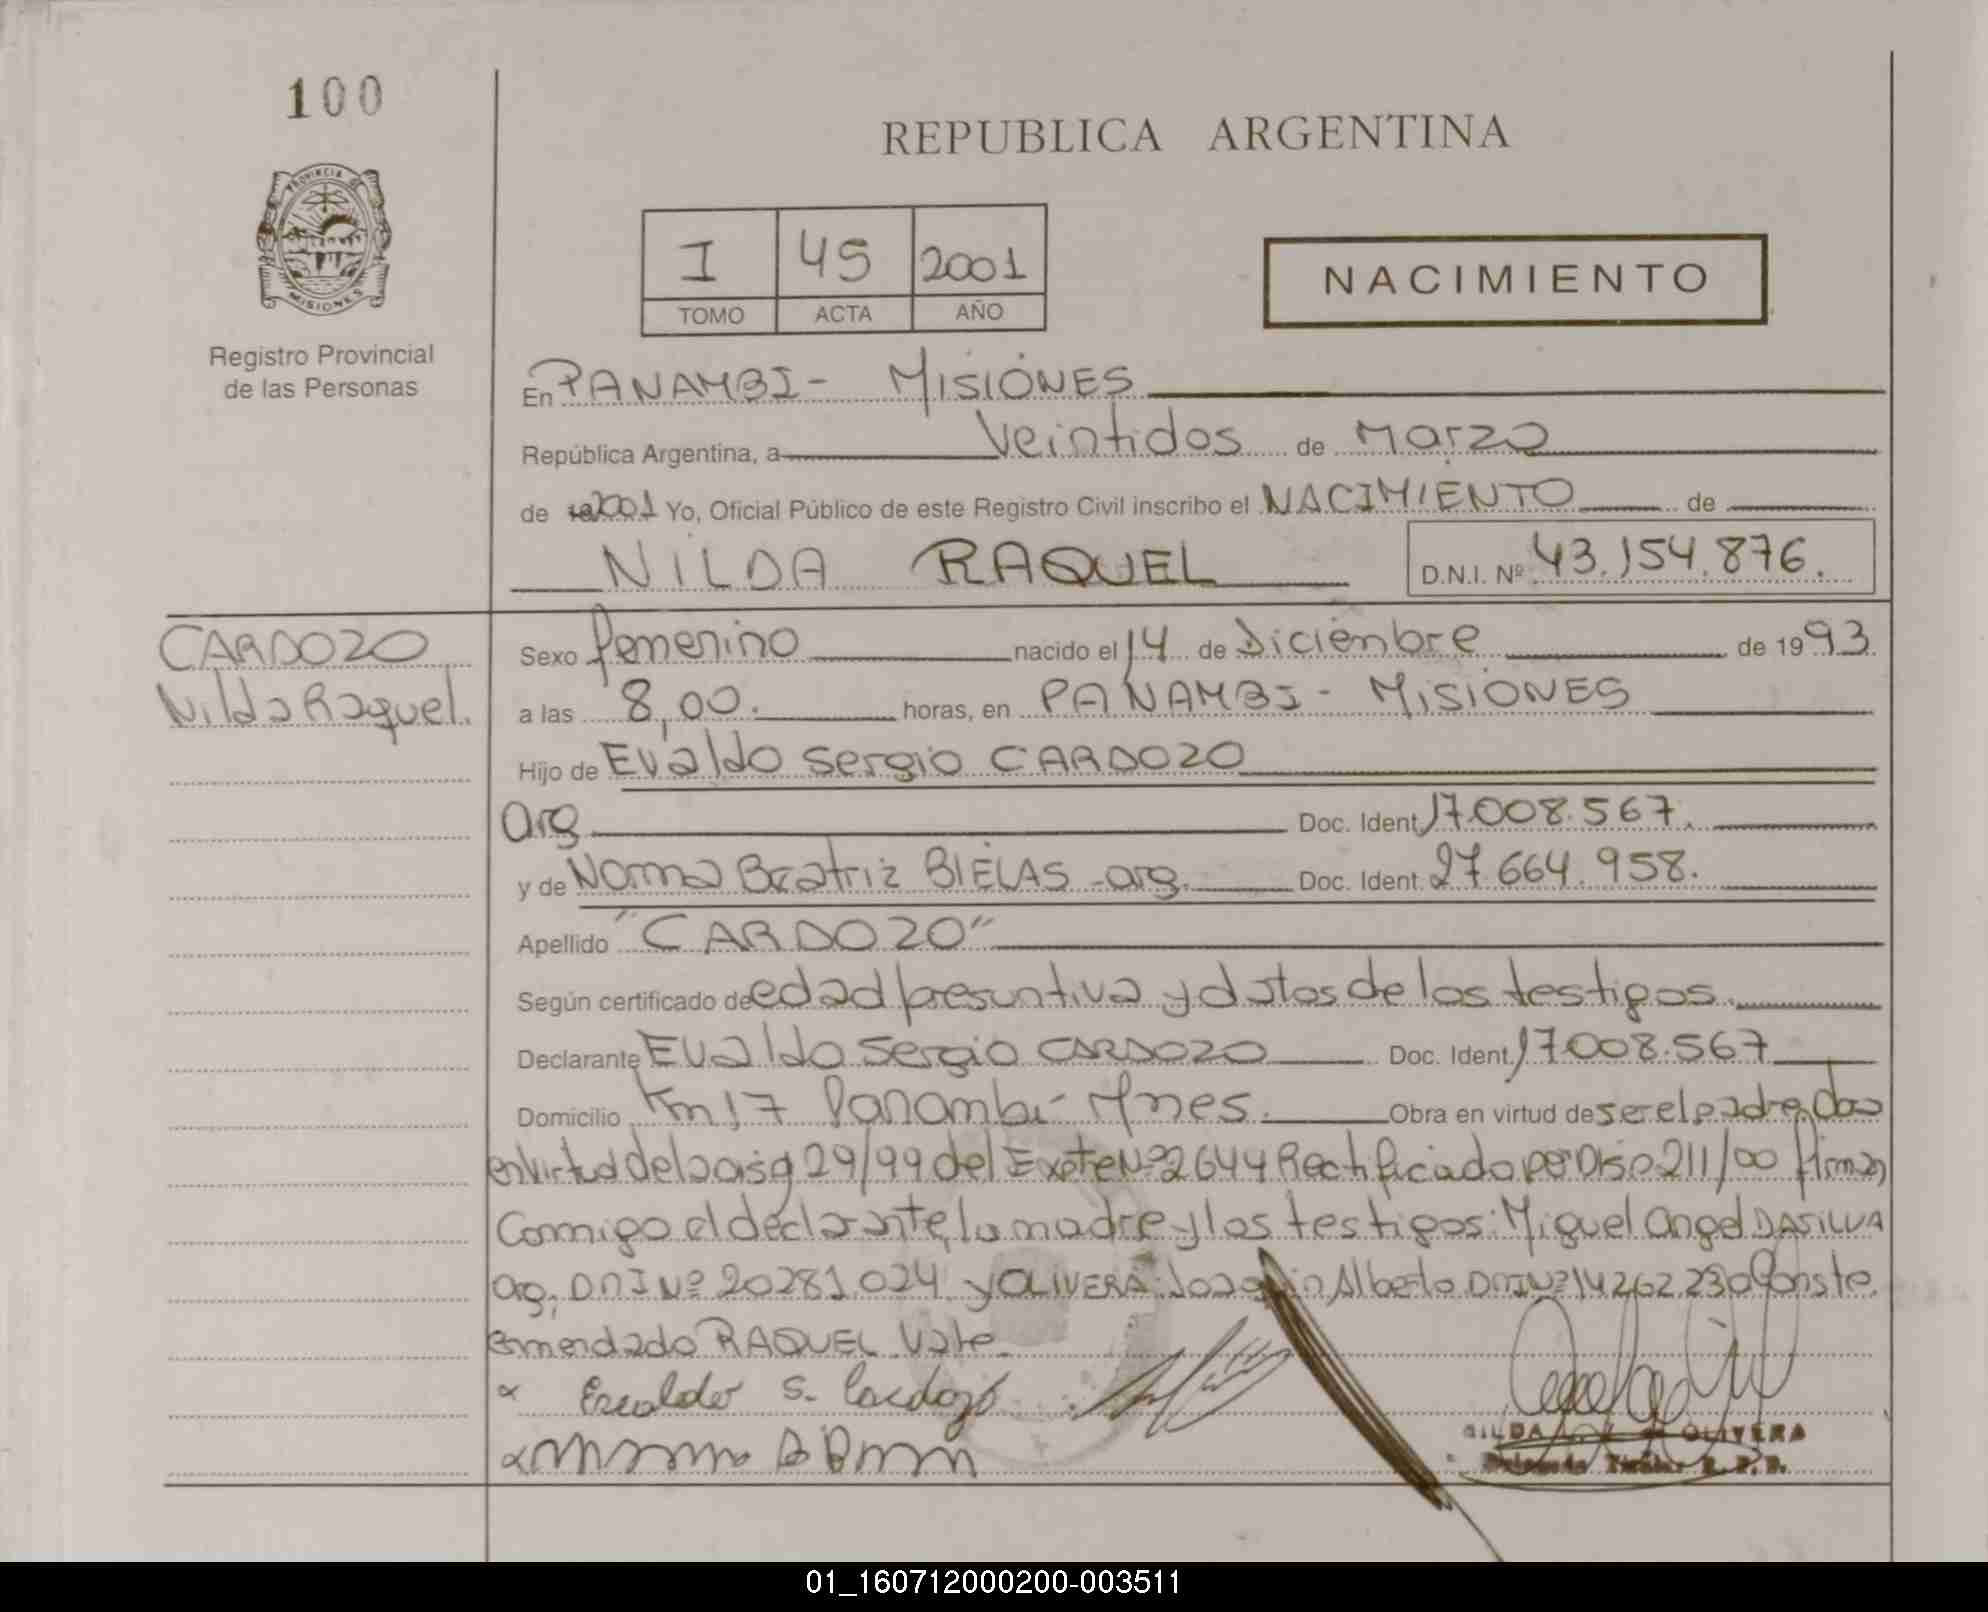 100
REPUBLICA ARGENTINA
PROVINCIA DE
MISIONES
I 45 2001
TOMO ACTA AÑO
NACIMIENTO
Registro Provincial
de las Personas
En PANAMBI - MISIONES
República Argentina, a Veintidos de Marzo
de 2001 Yo, Oficial Público de este Registro Civil inscribo el NACIMIENTO de
NILDA RAQUEL D.N.I. Nº 43.154.876.
CARDOZO
Nilda Raquel.
Sexo femenino nacido el 14 de Diciembre de 1993
a las 8,00. horas, en PANAMBI - MISIONES
Hijo de Evaldo Sergio CARDOZO
Arg Doc. Ident. 17.008.567.
y de Norma Beatriz BIELAS - arg. Doc. Ident. 27.664.958.
Apellido "CARDOZO"
Según certificado de edad presuntiva y datos de los testigos.
Declarante Evaldo Sergio CARDOZO Doc. Ident. 17.008.567
Domicilio Km 17 Panambi - Mnes. Obra en virtud de ser el padre,
en virtud de la 29/99 del Expte Nº 2644 Rectificado por Disp 211/00 firman
Comigo el declarante, la madre y los testigos: Miguel Angel DASILVA
Arg. DNI Nº 20281.024 y OLIVERA: Joaquin Alberto DNI Nº 14262.230 Conste.
enmendado RAQUEL Vale.
Evaldo S. Cardozo
GILDA OLIVERA
Delegada Titular R. P. P.
01_160712000200-003511